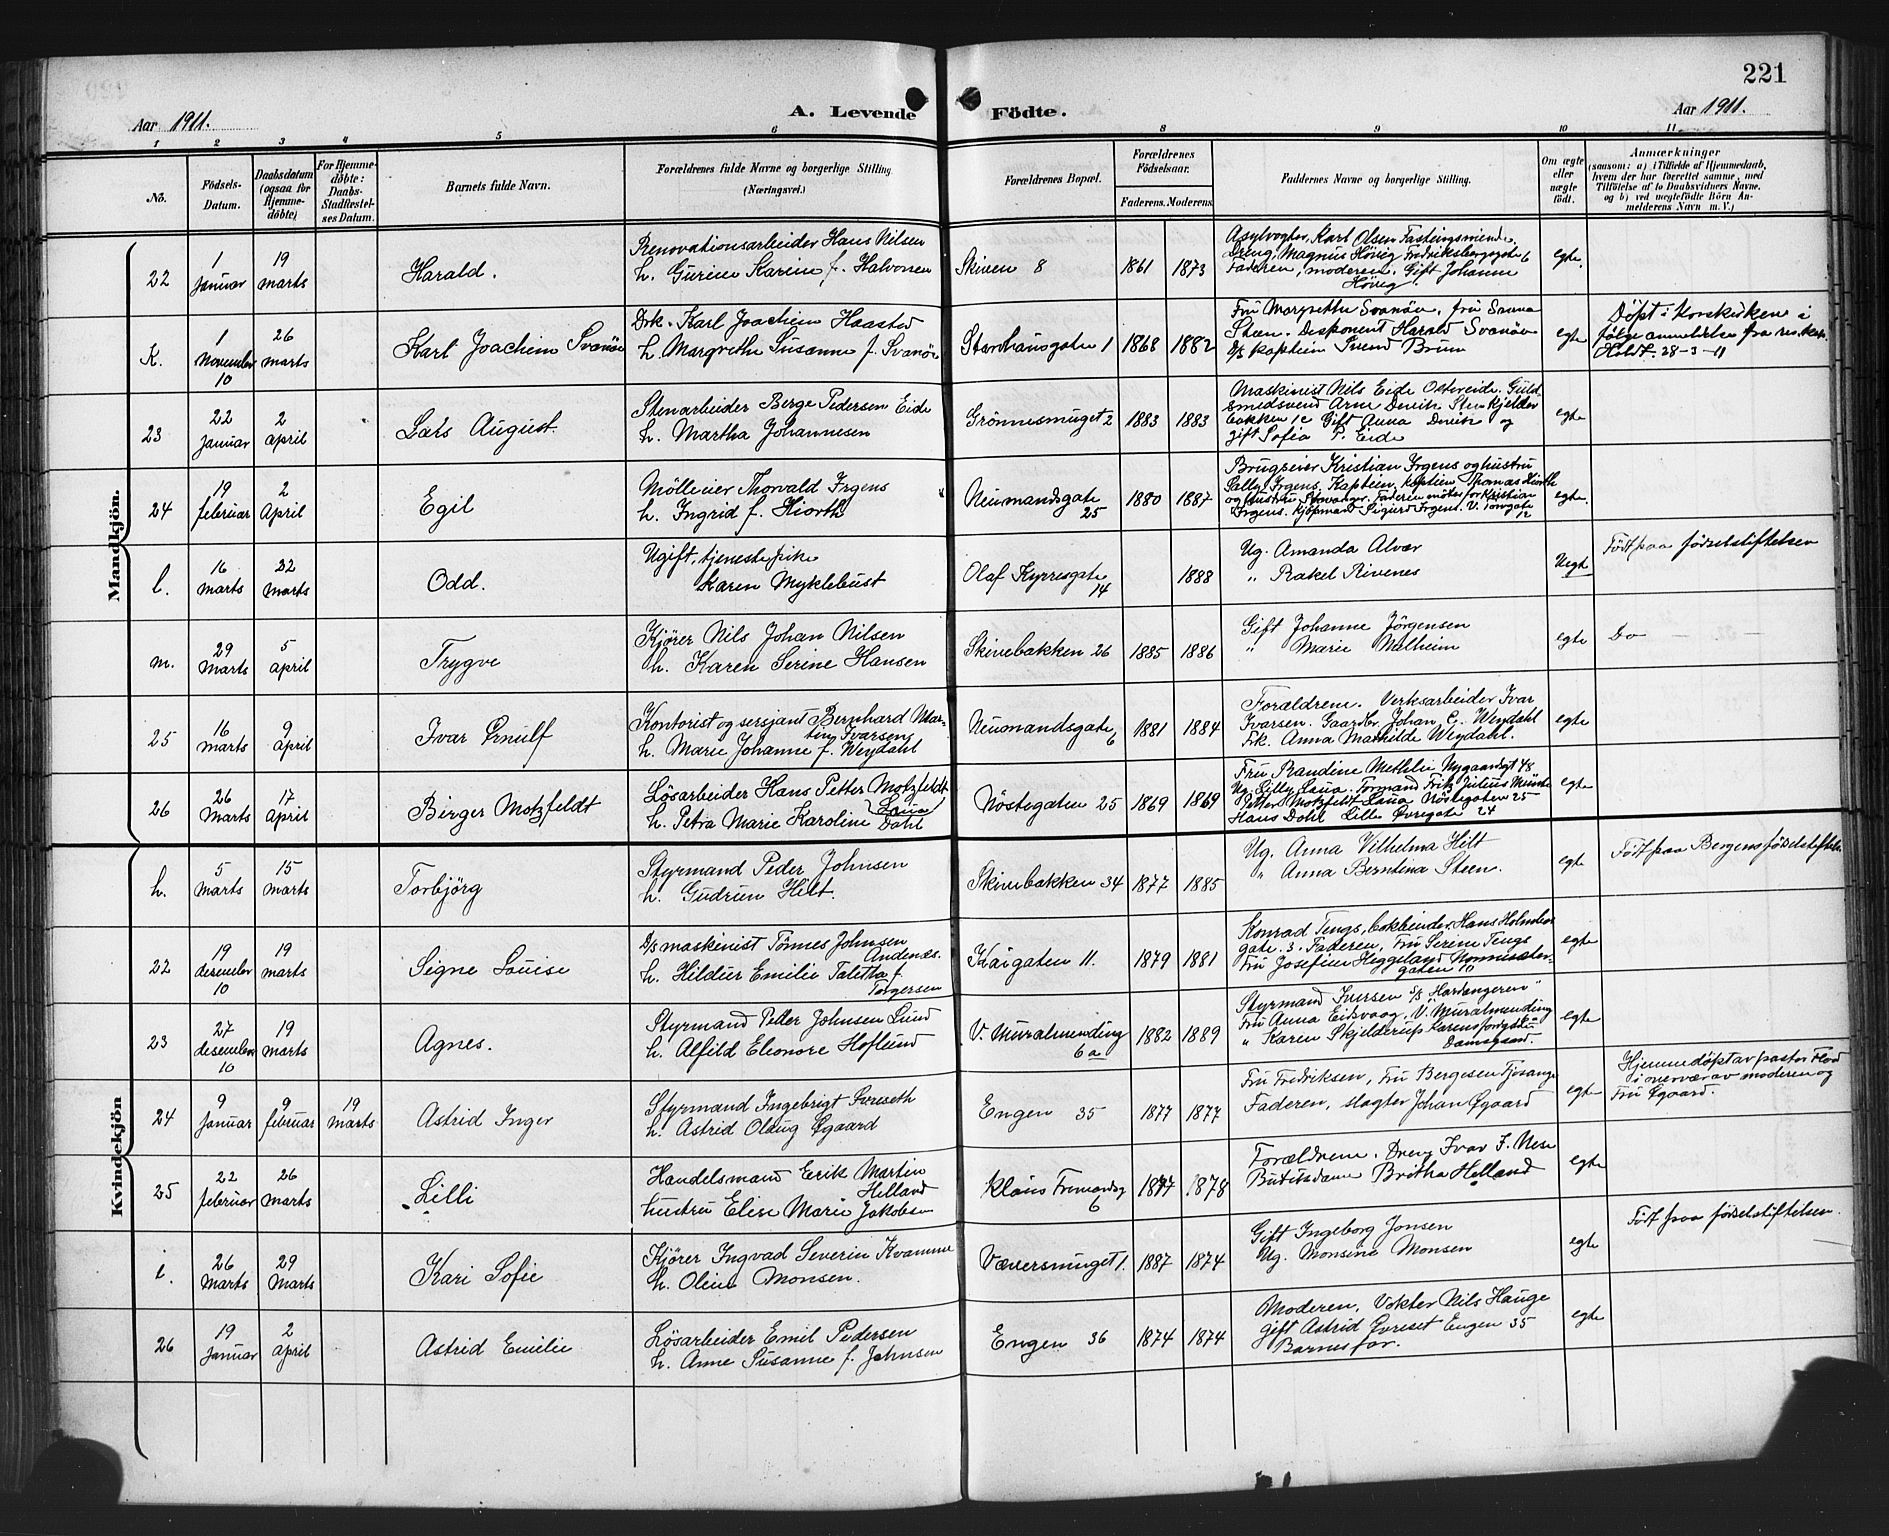 221
Aar 1911.
A. Levende Födte.
Aar 1911.
1 2 3 4 5 6 8 9 10 11
No.
Födsels-Datum.
Daabsdatum (ogsaa for Hjemme-döbte)
For Hjemme-döbte: Daabs-Stadfæstel-ses Datum.
Barnets fulde Navn.
Forældrenes fulde Navne og borgerlige Stilling (Næringsvei.)
Forældrenes Bopæl.
Forældrenes Födselsaar.
Faderens. Moderens.
Faddernes Navne og borgerlige Stilling.
Om ægte eller uægte födt.
Anmærkninger
(saasom: a) i Tilfælde af Hjemmedaab,
hvem der har forrettet samme, med
Tilföielse af to Daabsvidners Navne,
og b) ved uegtefödte Börn An-
melderens Navn m. V.)
Mandkjön.
22 1 Januar 19 marts Harald.
Renovationsarbeider Hans Nilsen
h. Gurine Karine f. Halvorsen
Skiven 8 1861 1873
Asylvogter Karl Olsen
Dreng Magnus Hövig Fredriksbergsgate 6
Faderen, moderen. Gift Johanne
Hövig
egte.
K. 1 November 10 26 marts Karl Joachim Svanöe
Drk. Karl Joachim Haasted
h. Margrethe Susanne f. Svanöe
Starehausgaten 1 1868 1882
Fru Margrethe Svanöe, fru Sanna
Steen. Disponent Harald Svanöe
D/s kaptein Svend Brun
egte
Döpt i Korskirken i
følge anmeldelse fra res. kap.
Holdt. 28-3-11
23 22 Januar 2 april Lars August.
Stenarbeider Berge Pedersen Eide
h. Martha Johannesen
Grönnesmuget 2 1883 1883
Maskinist Nils Eide Ostereide. Guld
smedsvend Arne
bakken 1c Gift Anna og
gift Sofia P. Eide
egte
24 19 februar 2 April Egil
Mölleeier Thorvald Irgens
h. Ingrid f. Hiorth
Neumandsgate 25 1880 1887
Brugseier Kristian Irgens og hustru
Sally Irgens, Kaptein, kaptein Thomas Hiorth
og hustru Stavanger. Faderen møter for Kristian
Irgens. Kjöpmand Sigurd Irgens. V. Torvgate
12
egte.
l. 16 marts 22 marts Odd.
Ugift, tjenestepike
Karen Myklebust
Olaf Kyrresgate 14 1888
Ug. Amanda Alvær
" Rakel Rivenes
Uegt
Født paa fødselstiftelsen
m. 29 Marts 5 april Trygve
Kjörer Nils Johan Nilsen
h. Karen Serine Hansen
Skivebakken 26 1885 1886
Gift Johanne Jörgensen
" Marie Mælheim
egte
Do
25 16 marts 9 april Ivar Arnulf
Kontorist og sersjant Bernhard Mar-
tin Ivarsen
h. Marie Johanne f. Weydahl
Neumandsgate 6 1881 1884
Forældrene. Verksarbeider Ivar
Ivarsen. Gaardbr. Johan C. Weydahl
Frk. Anna Mathilde Weydahl.
egte
26 26 Marts 17 April Birger Motzfeldt
Lösarbeider Hans Petter Motzfeldt
Laua
h. Petra Marie Karoline Dahl
Nöstegaten 25 1869 1869
Fru Randine Methlie Nygaardsgt 48
Ug. Lilly Laua. Formand Fritz Julius Münster
Petter Motzfeldt Laua Nöstegaten 25
Hans Dahl Lille Øvregate 24
egte
Kvindekjön
h. 5 marts 15 marts Torbjörg
Styrmand Peder Johnsen
h. Gudrun Hilt.
Skivebakken 34 1877 1885
Ug. Anna Vilhelma Hilt
" Anna Berntina Steen.
egte
Født paa Bergens fødselstiftelse
22 19 desember 10 19 marts Signe Louise
D/s maskinist Tönnes Johnsen
Andenæs.
h. Hildur Emilie Taletta f.
Torgersen
Kaigaten 11. 1879 1881
Konrad Tengs, bokbinder, Hans Holmboe
gate 3. Faderen, Fru Serene Tengs
Fru Josefine Heggeland Nonneseter-
gaten 10
egte
23 27 desember 10 19 marts Agnes.
Styrmand Petter Johnsen Lund
h. Alfild Eleonore Hoflund
V. Muralmending 6a 1882 1889
Styrmand Iversen S/S "Hardangeren"
Fru Anna Eidsvaag, V. Muralmending
" Karen Skjelderup
Damsgaard.
egte
24 9 Januar 9 februar 19 marts Astrid Inger
Styrmand Ingebrigt Svereseth
h. Astrid Olaug Øgaard
Engen 35 1877 1877
Fru Fredriksen, Fru Bergesen Fjösanger
Faderen, slagter Johan Øgaard
egte
Hjemmedöpt av pastor Flod
i overvær av moderen og
Fru Øgaard.
25 22 februar 26 marts Lilli
Handelsmand Erik Martin
Helland
hustru Elise Marie Jakobsen
Klaus Fremandsg 6 1877 1878
Forældrene, Dreng Ivar J. Nese
Butiksdame Britha Helland
egte
i. 26 Marts 29 Marts Kari Sofie
Kjörer Ingvad Severin Kvamme
h. Oline Monsen.
Væversmuget 1. 1887 1874
Gift Ingeborg Jonsen
Ug. Monsine Monsen
egte
Født paa fødselstiftelsen.
26 19 Januar 2 april Astrid Emilie
Lösarbeider Emil Pedersen
h. Anne Susanne f. Johnsen
Engen 36 1874 1874
Moderen, Vokter Nils Hauge
Gift Astrid Øvreset Engen 35
Barnets far.
egte